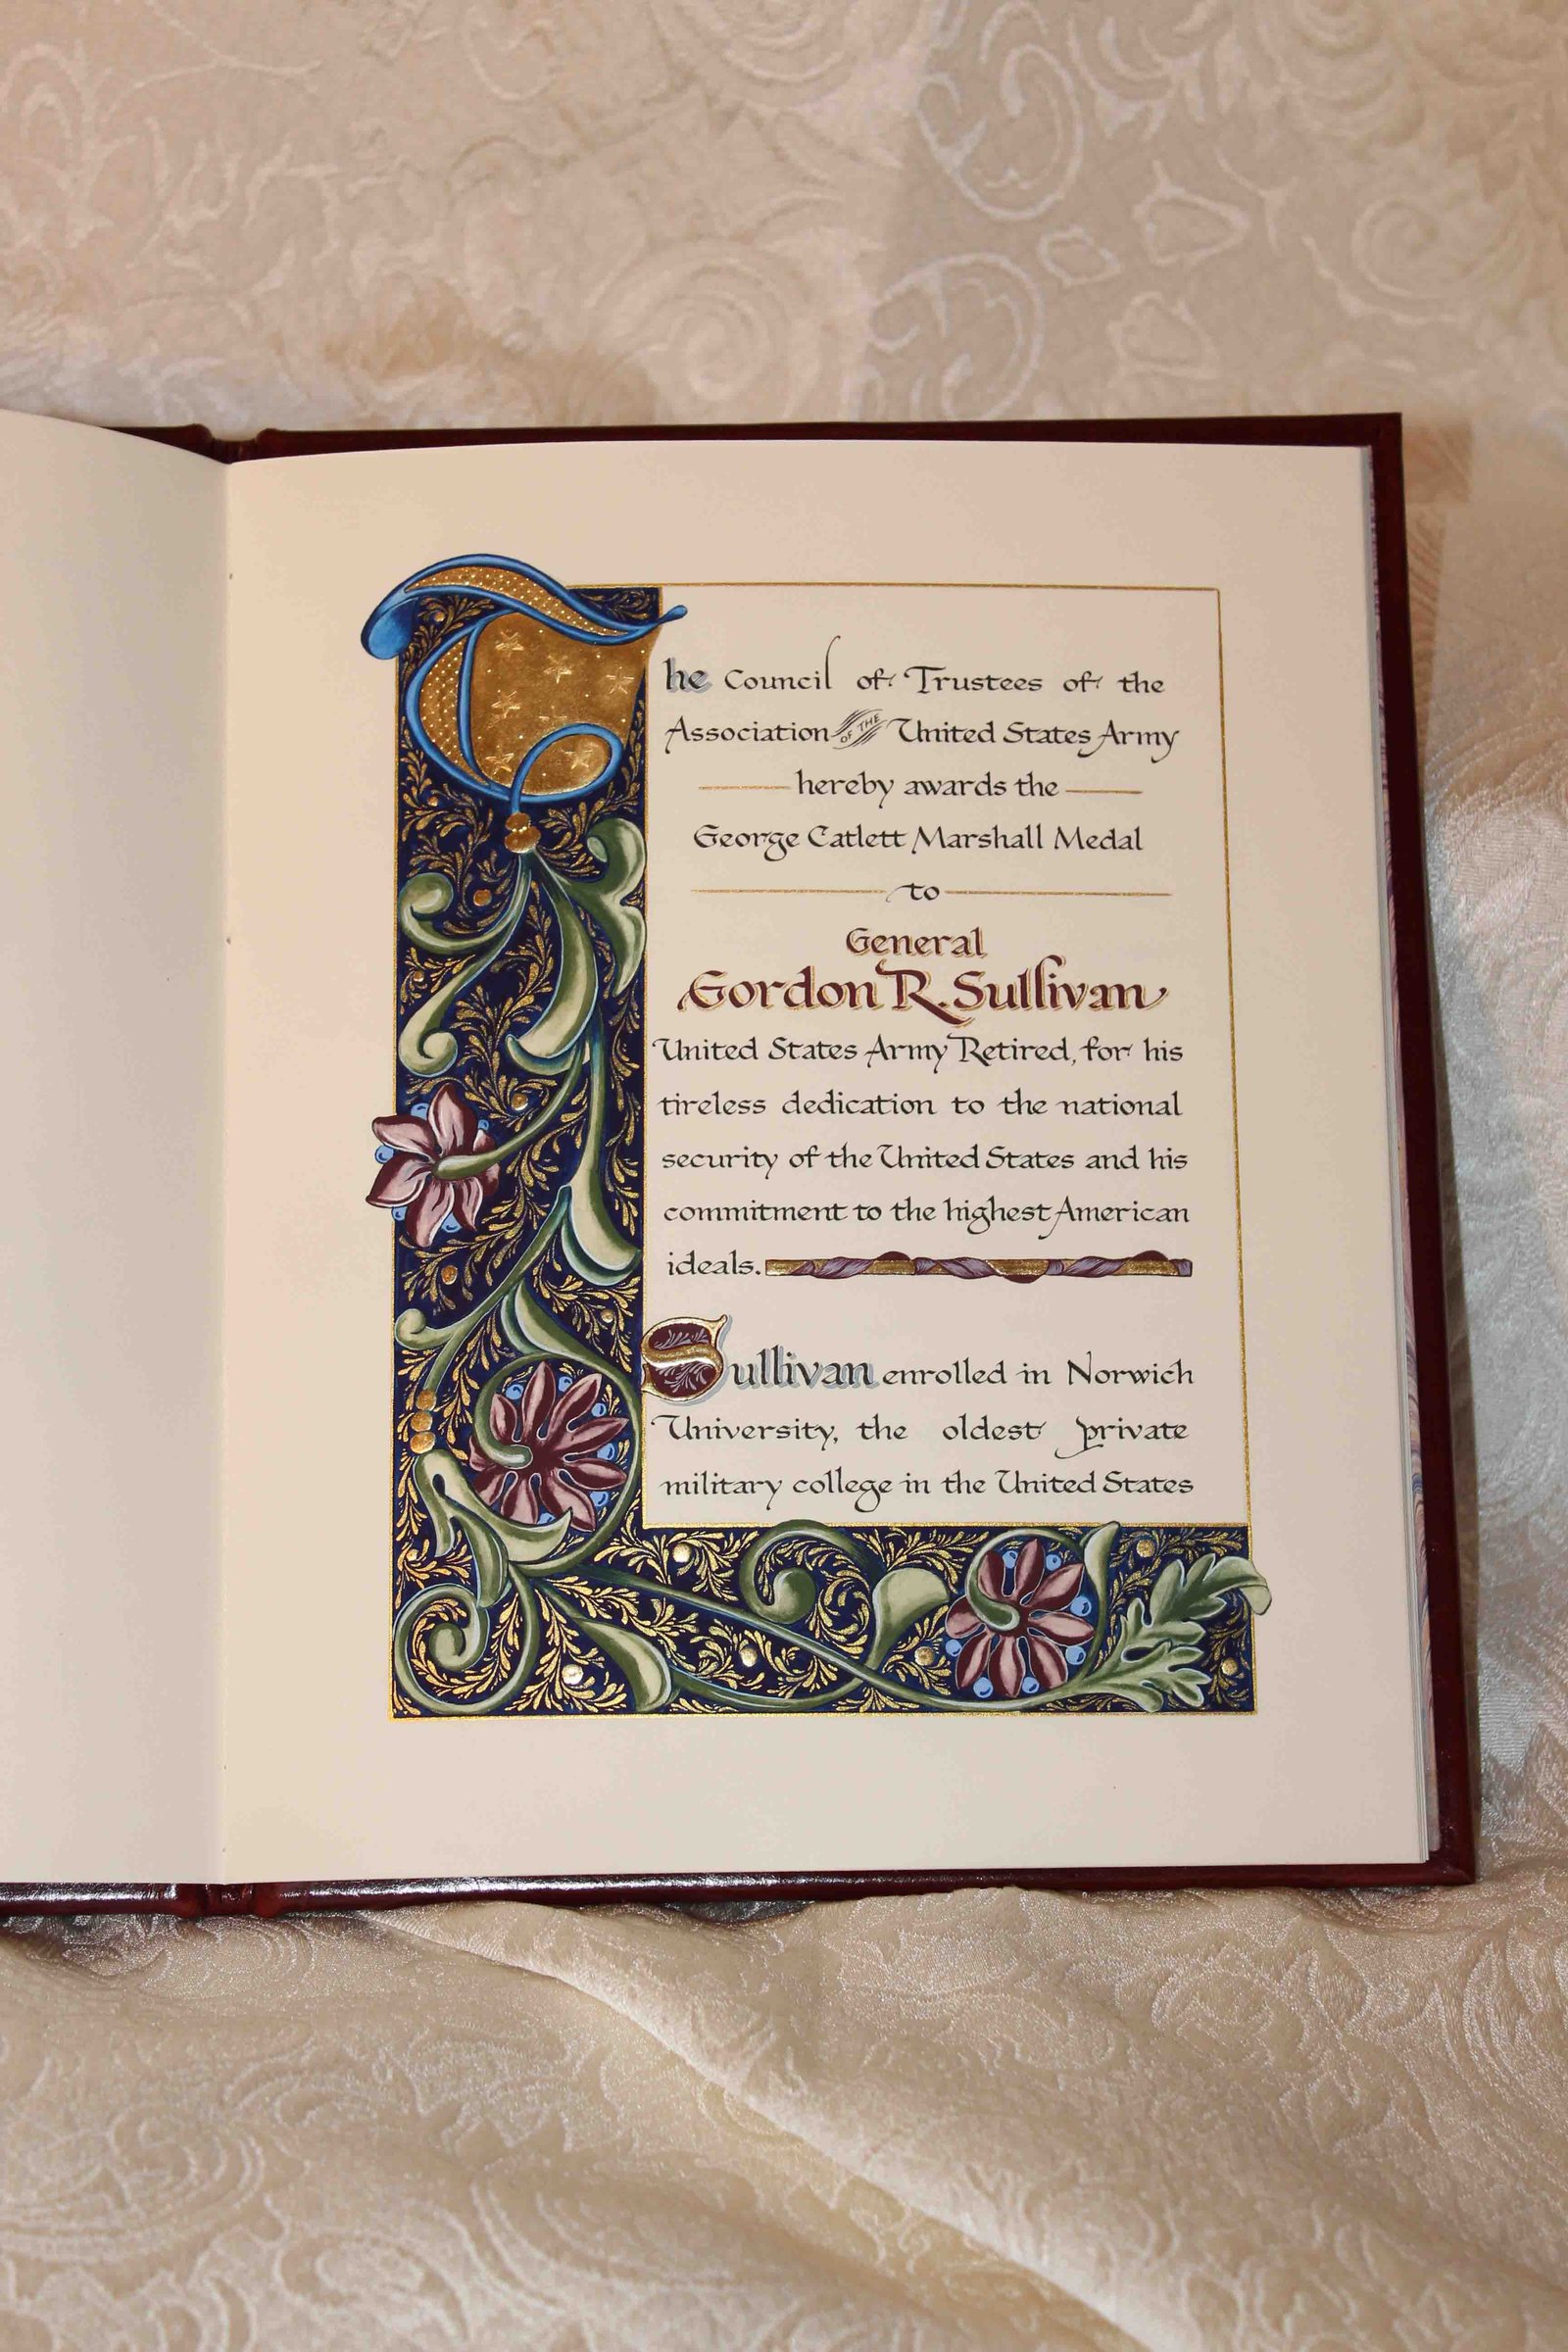 The Council of Trustees of the
Association OF THE United States Army
hereby awards the
George Catlett Marshall Medal
to
General
Gordon R. Sullivan
United States Army Retired, for his
tireless dedication to the national
security of the United States and his
commitment to the highest American
ideals.
Sullivan enrolled in Norwich
University, the oldest private
military college in the United States